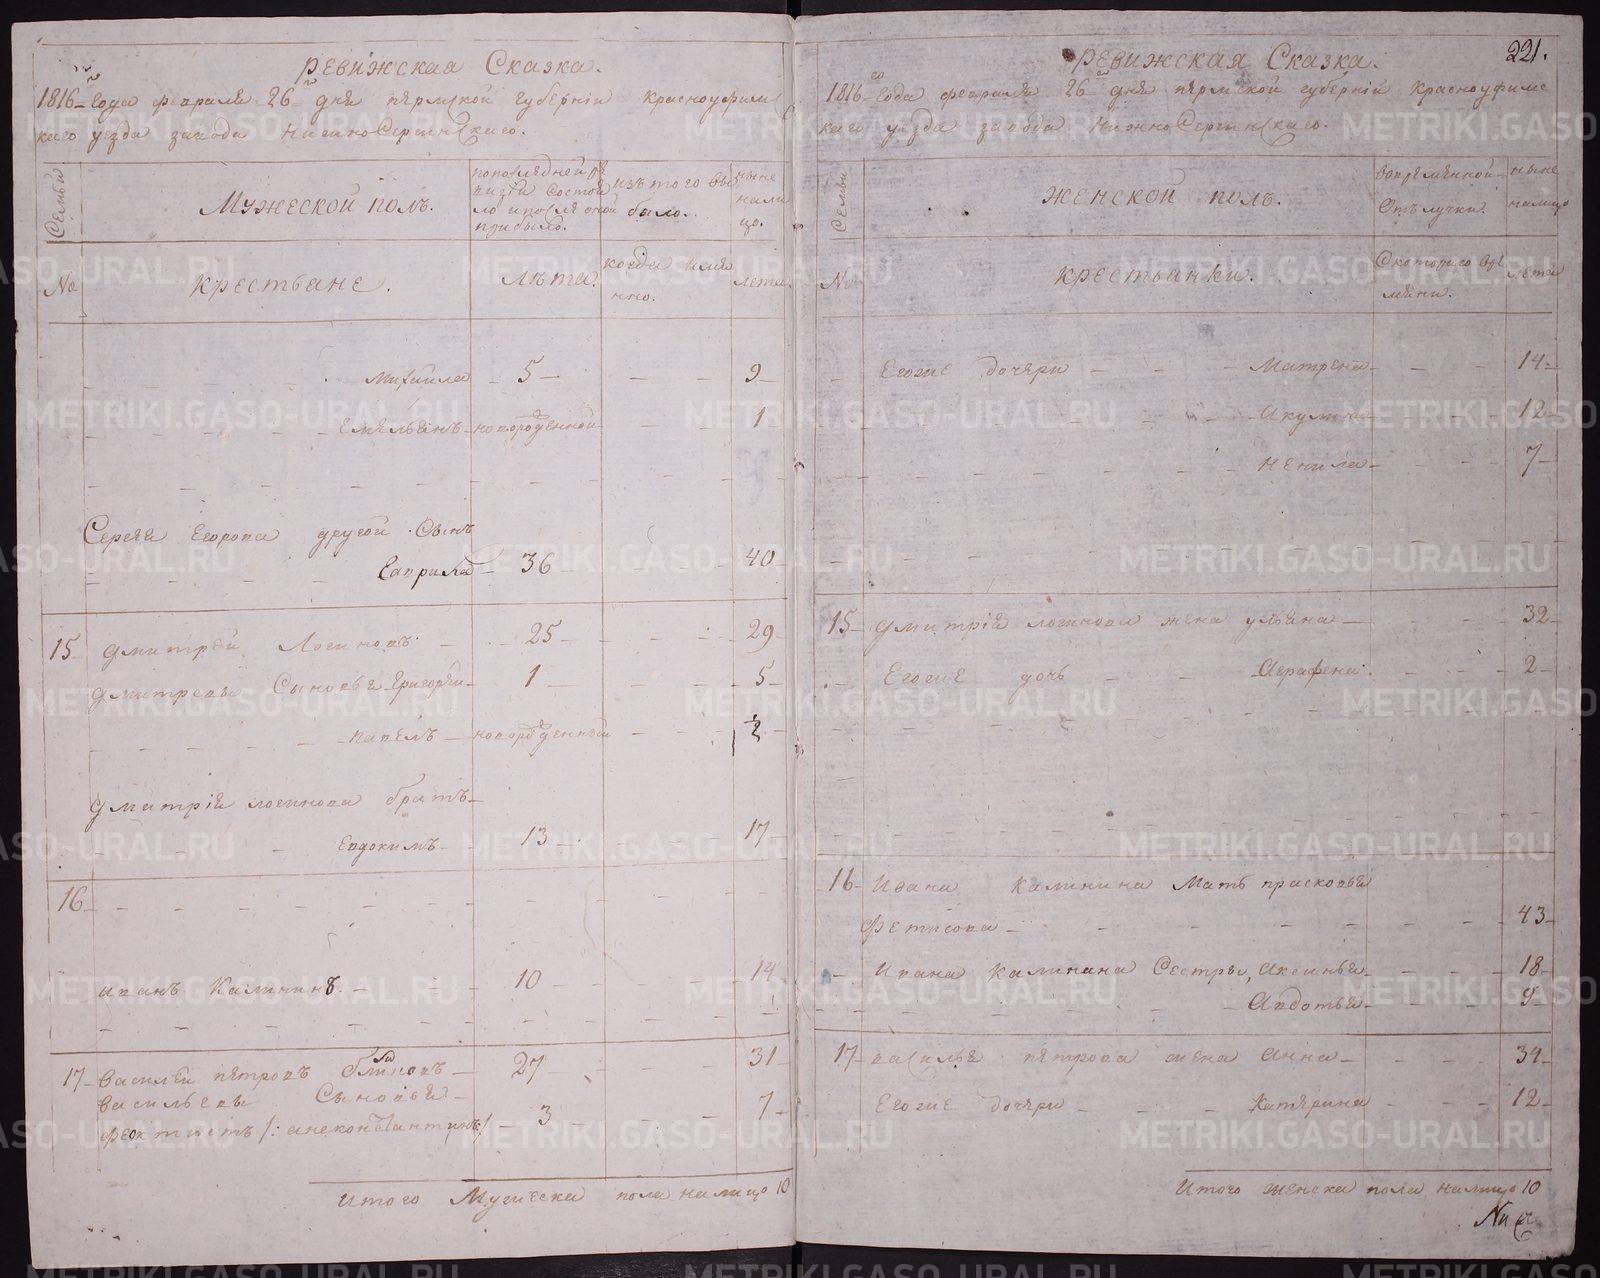 Ревижская Сказка.
1816 года февраля 26 дня пермской губерніи красноуфим
скаго уезда завода Нижносергинскаго.
Семьи
Мужеской полъ.
попоследней ре
визіи состоя
ло и после оной
прибыло.
изъ того вы
было.
ныне
нали
цо.
No
крестьяне.
лѣта.
когда имян
нно.
лета.
Михайла 5 9
Емельянъ новорожденной 1
Сергея Егорова другой сынъ
Гаврила 36 40
15 Дмитрей Логиновъ 25 29
Дмитревы Сыновья Григорей 1 5
павелъ новорожденный 2
Дмитрія логинова братъ
Евдокимъ 13 17
16
иванъ Калининъ 10 14
17 Василей петровъ блиновъ 27 31
васильевы Сыновья
феоктистъ /: а не константинъ / 3 7
Итого Мужеска пола налицо 10
221.
Ревижская Сказка.
1816 года февраля 26 дня пермской губерніи красноуфимс
каго уезда завода нижносергинскаго.
Семьи
Женской полъ.
вовременной
Отлучки.
ныне
налицо
No
крестьянки.
Скотораго вре
мяни.
лета
Егоже дочери Матрена 14
Акулина 12
Ненила 7
15 Дмитрія логинова жена ульяна 32
Егоже дочь Аграфена 2
16 Ивана Калинина Мать прасковья
Фетисова 43
Ивана Калинина Сестры, Аксинья 18
Авдотья 9
17 василья петрова жена Анна 34
Егоже дочери Катярина 12
Итого женска пола налицо 10
METRIKI.GASO-URAL.RU